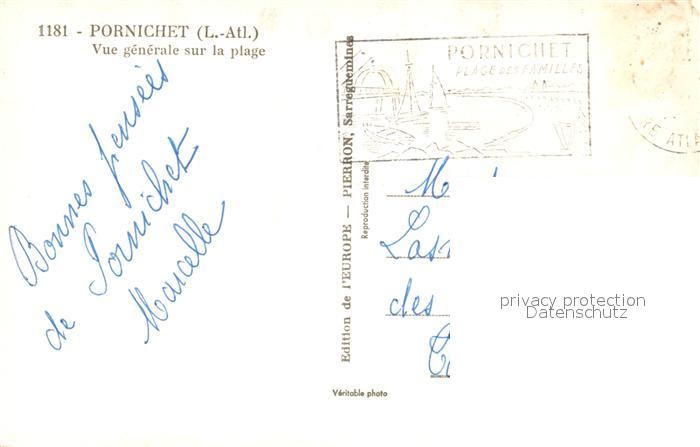 1181 - PORNICHET (L.-Atl.)
Vue générale sur la plage
Bonnes pensées
de Pornichet
Marcelle
Edition de l'EUROPE — PIERRON, Sarreguemines
Reproduction interdite
PORNICHET
PLAGE DES FAMILLES
RE ATL
des
privacy protection
Datenschutz
Véritable photo